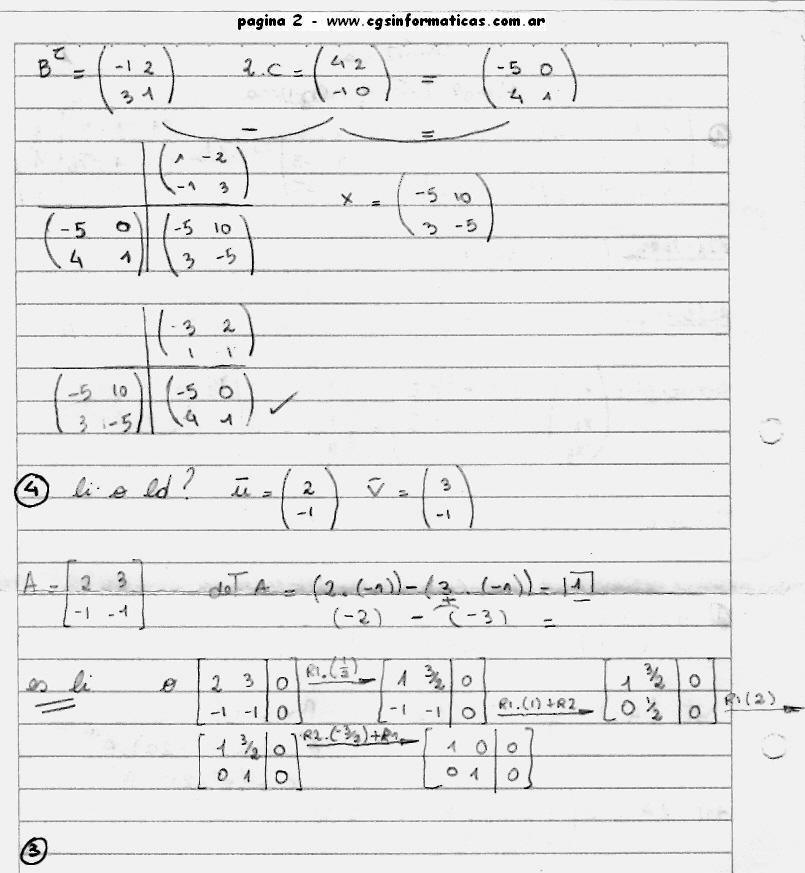 pagina 2 - www.cgsinformaticas.com.ar
B^τ = (-1 2 / 3 1) 2.C = (4 2 / -1 0) = (-5 0 / 4 1)
- =
(1 -2 / -1 3)
(-5 0 / 4 1) (-5 10 / 3 -5) x = (-5 10 / 3 -5)
(3 2 / 1 1)
(-5 10 / 3 -5) (-5 0 / 4 1) ✓
4 li o ld? ū = (2 / -1) v̄ = (3 / -1)
A = [2 3 / -1 -1] det A = (2.(-1)) - (3.(-1)) = 1
(-2) - (-3) =
es li o [2 3 | 0 / -1 -1 | 0] R1.(1/2) → [1 3/2 | 0 / -1 -1 | 0] R1.(1)+R2 → [1 3/2 | 0 / 0 1/2 | 0] R1(2) →
[1 3/2 | 0 / 0 1 | 0] R2.(-3/2)+R1 → [1 0 | 0 / 0 1 | 0]
3